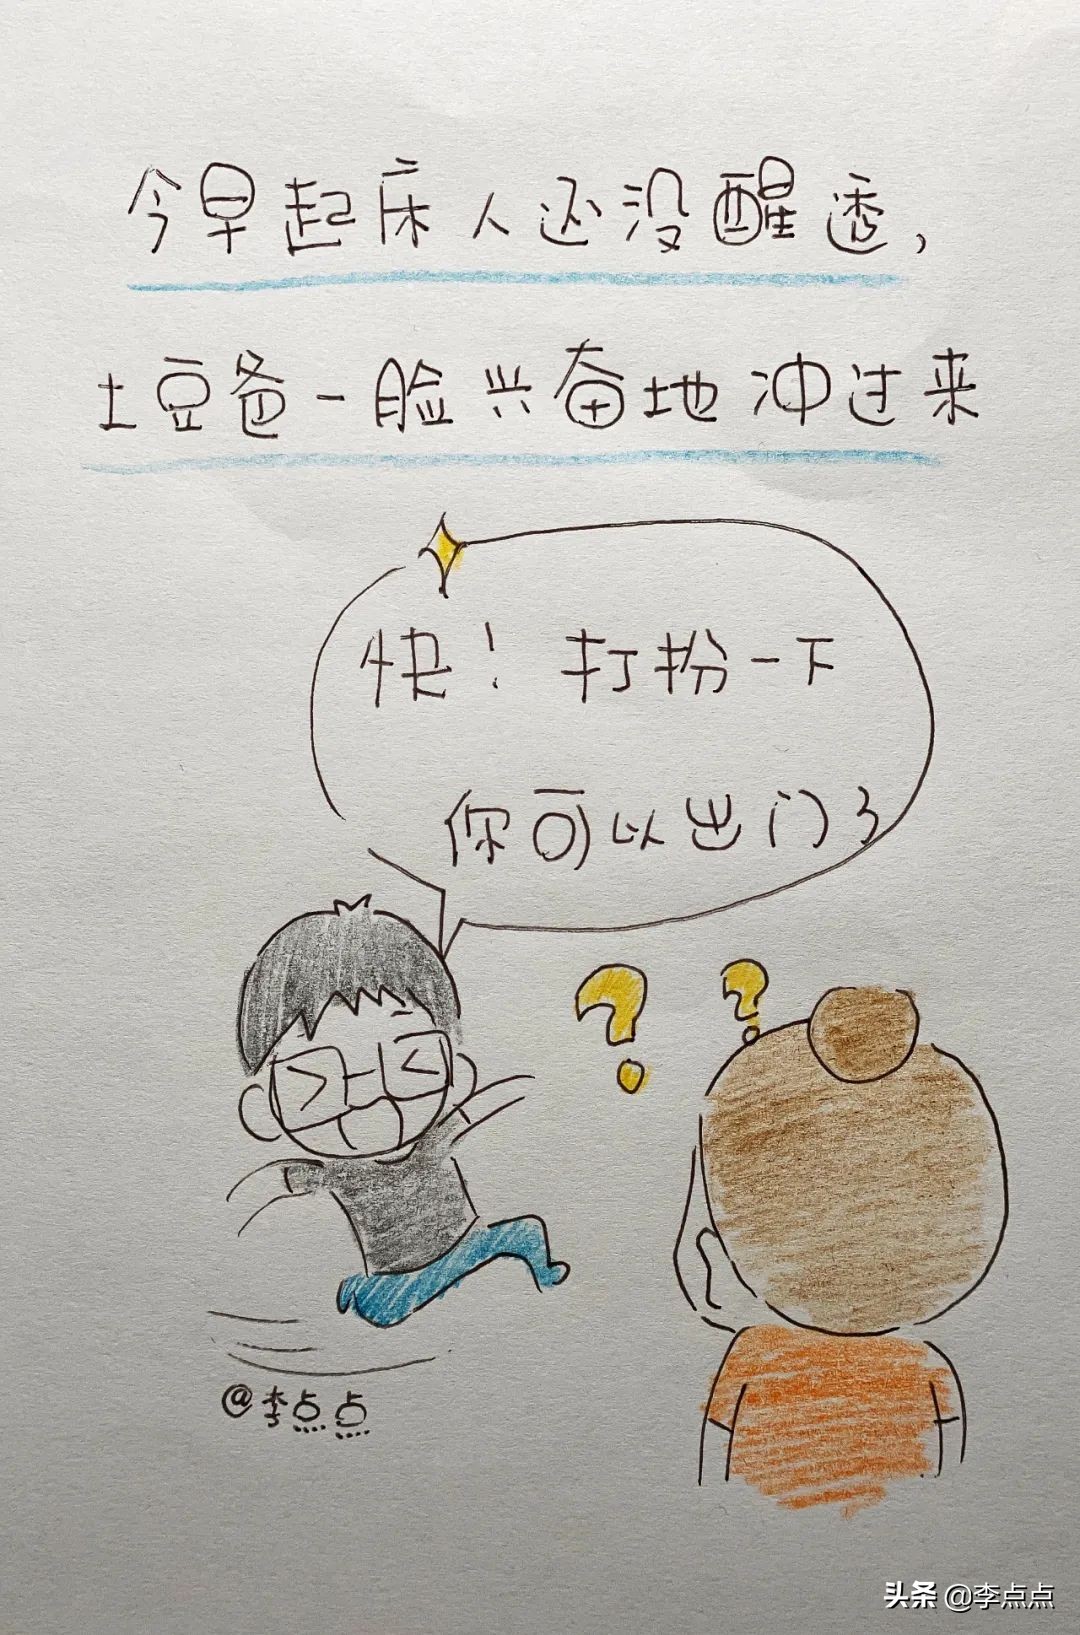 今早起床人还没醒透,
土豆爸一脸兴奋地冲过来
快! 打扮一下
你可以出门了
? ?
@李点点
头条 @李点点